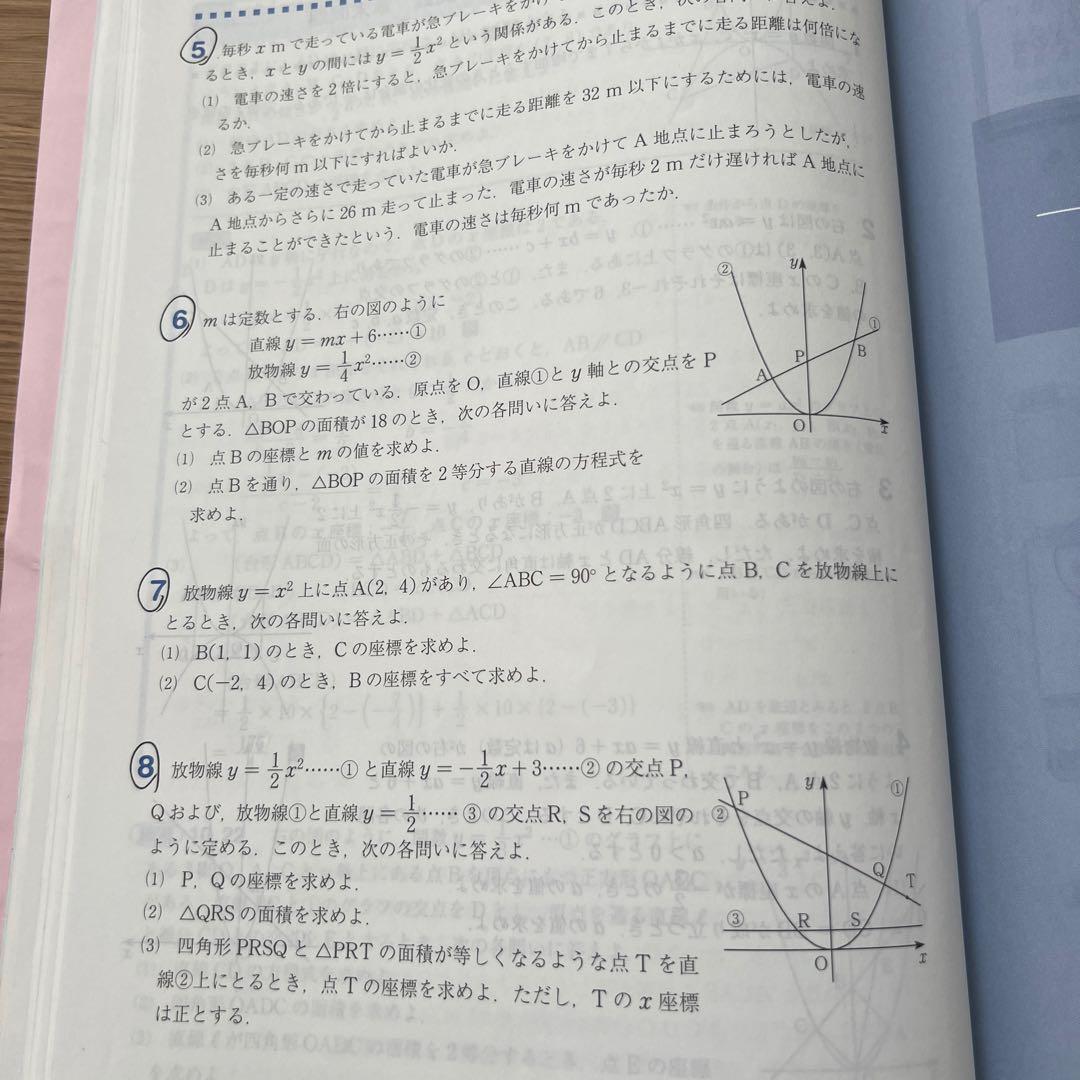 5 毎秒 x m で走っている電車が急ブレーキをかけて
るとき，xとyの間には y=1/2x² という関係がある．このとき，次の
(1) 電車の速さを2倍にすると，急ブレーキをかけてから止まるまでに走る距離は何倍にな
るか．
(2) 急ブレーキをかけてから止まるまでに走る距離を 32 m 以下にするためには，電車の速
さを毎秒何m以下にすればよいか．
(3) ある一定の速さで走っていた電車が急ブレーキをかけて A 地点に止まろうとしたが，
A 地点からさらに 26 m 走って止まった．電車の速さが毎秒 2 m だけ遅ければ A 地点に
止まることができたという．電車の速さは毎秒何mであったか．
6 mは定数とする．右の図のように
直線 y=mx+6……①
放物線 y=1/4x²……②
が2点A，Bで交わっている．原点をO，直線①とy軸との交点をP
とする．△BOPの面積が18のとき，次の各問いに答えよ．
(1) 点Bの座標とmの値を求めよ．
(2) 点Bを通り，△BOPの面積を2等分する直線の方程式を
求めよ．
② y ① P B A O x
7 放物線 y=x² 上に点A(2, 4)があり，∠ABC=90°となるように点B，Cを放物線上に
とるとき，次の各問いに答えよ．
(1) B(1, 1)のとき，Cの座標を求めよ．
(2) C(−2, 4)のとき，Bの座標をすべて求めよ．
8 放物線 y=1/2x²……①と直線 y=−1/2x+3……②の交点P，
Qおよび，放物線①と直線 y=1/2……③の交点R，Sを右の図の
ように定める．このとき，次の各問いに答えよ．
(1) P，Qの座標を求めよ．
(2) △QRSの面積を求めよ．
(3) 四角形PRSQと△PRTの面積が等しくなるような点Tを直
線②上にとるとき，点Tの座標を求めよ．ただし，Tのx座標
は正とする．
P y ① ② Q T ③ R S O x